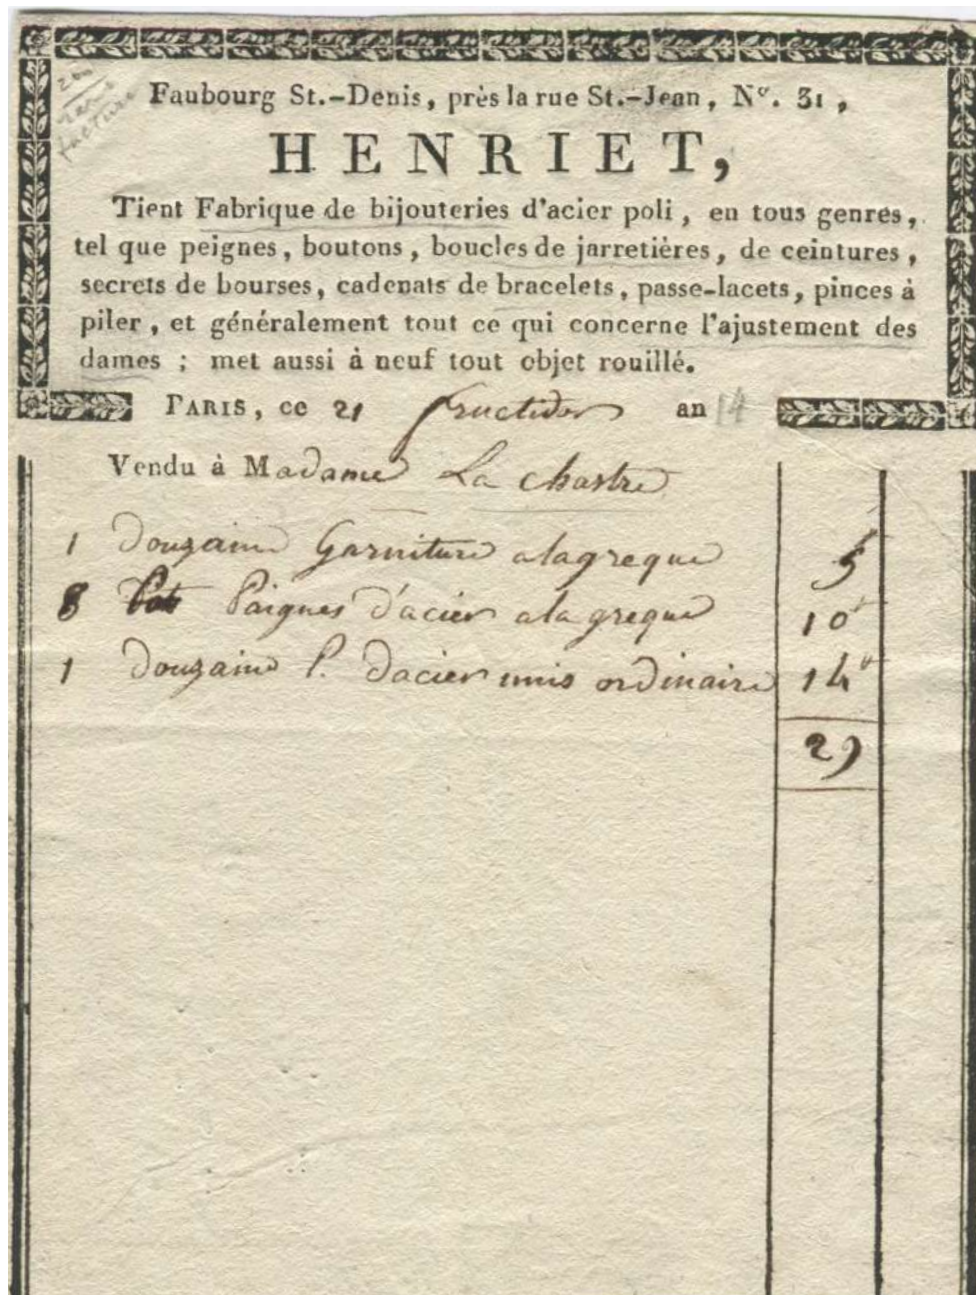 Faubourg St.-Denis, près la rue St.-Jean, Nº. 31,
HENRIET,
Tient Fabrique de bijouteries d'acier poli, en tous genres,
tel que peignes, boutons, boucles de jarretières, de ceintures,
secrets de bourses, cadenats de bracelets, passe-lacets, pinces à
piler, et généralement tout ce qui concerne l'ajustement des
dames ; met aussi à neuf tout objet rouillé.
PARIS, ce 21 fructidor an 14
Vendu à Madame La chastre
1 douzaine Garniture alagreque 5
8 Paignes d'acier alagreque 10
1 douzaine P. dacier unis ordinaire 14
29